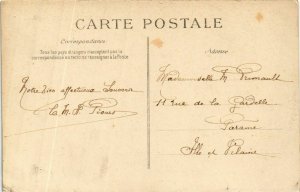 CARTE POSTALE
Correspondance
Tous les pays étrangers n'acceptent pas la
correspondance au recto se renseigner à la Poste
Adresse
Notre bien affectueux Souvenir
Mademoiselle
11 Rue de la Gardelle
Paramé
Ille et Vilaine